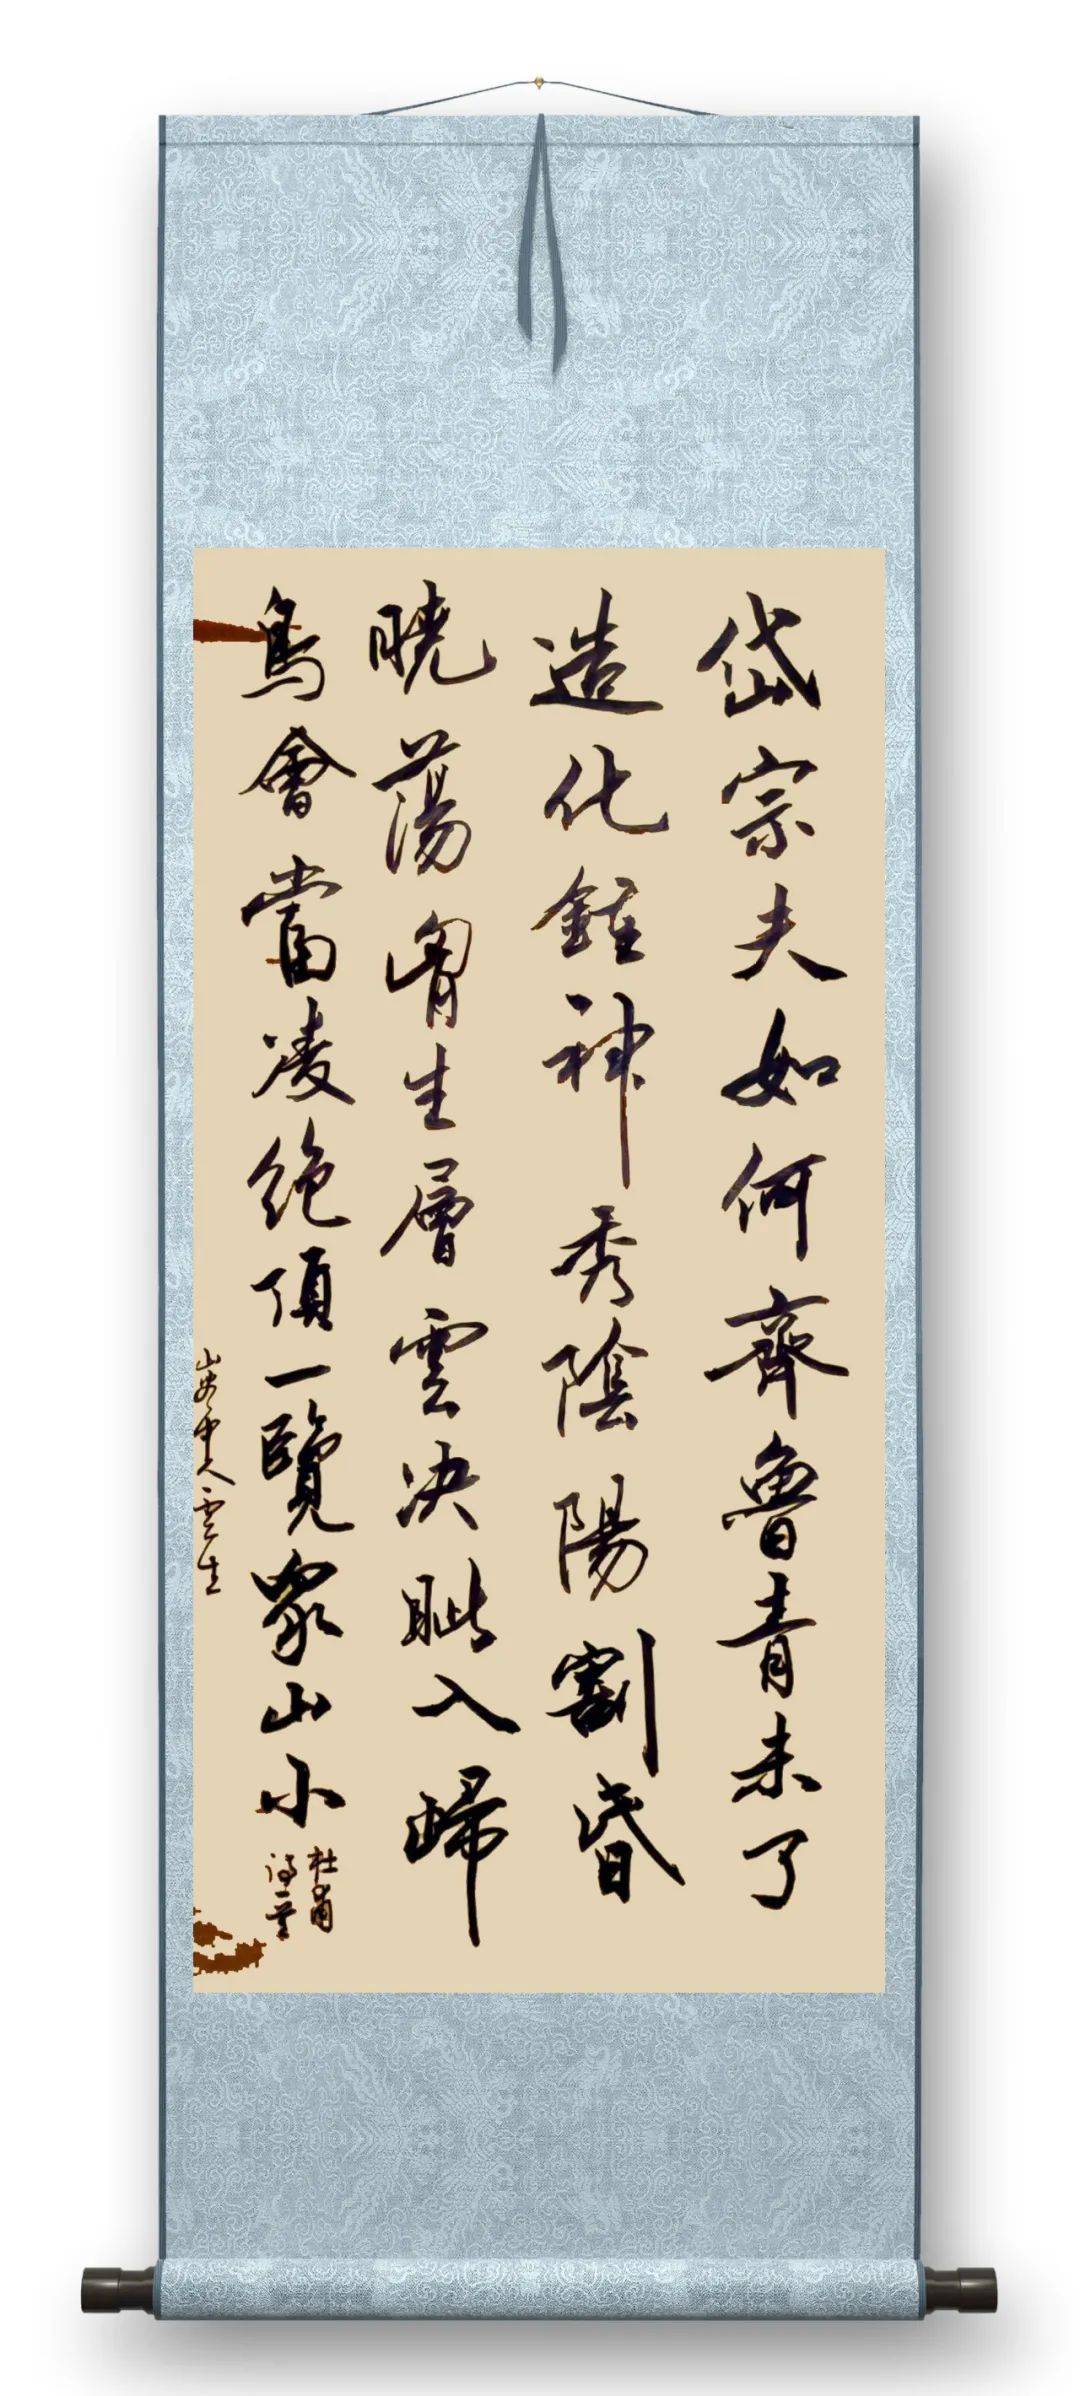 岱宗夫如何齊魯青未了
造化鍾神秀陰陽割昏
曉蕩胷生層雲決眦入歸
鳥會當凌絕頂一覽眾山小
杜甫
詩一首
雲生